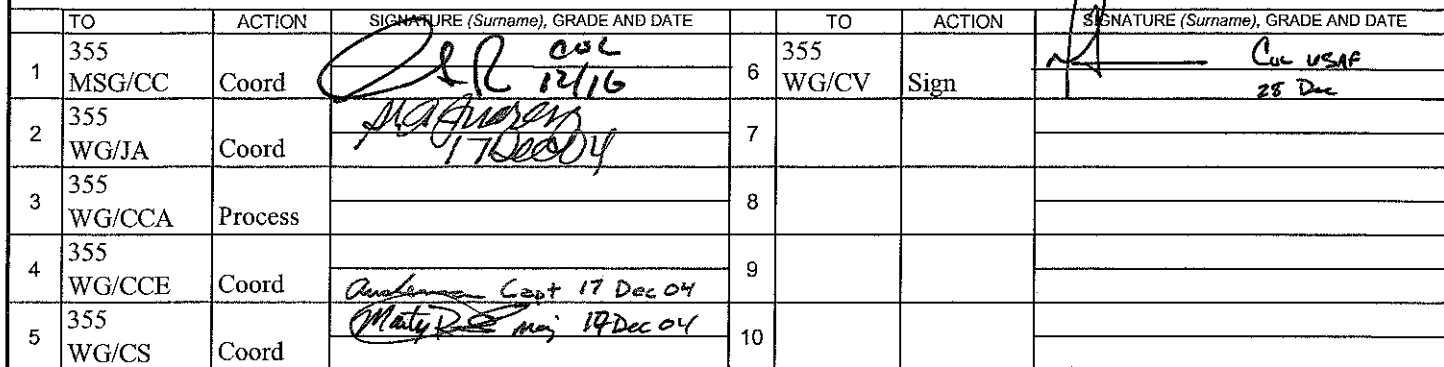 TO ACTION SIGNATURE (Surname), GRADE AND DATE TO ACTION SIGNATURE (Surname), GRADE AND DATE
1 355 MSG/CC Coord COL 12/16
6 355 WG/CV Sign Col USAF 28 Dec
2 355 WG/JA Coord 17 Dec 04
7
3 355 WG/CCA Process
8
4 355 WG/CCE Coord Capt 17 Dec 04
9
5 355 WG/CS Coord Marty Maj Dec 04
10